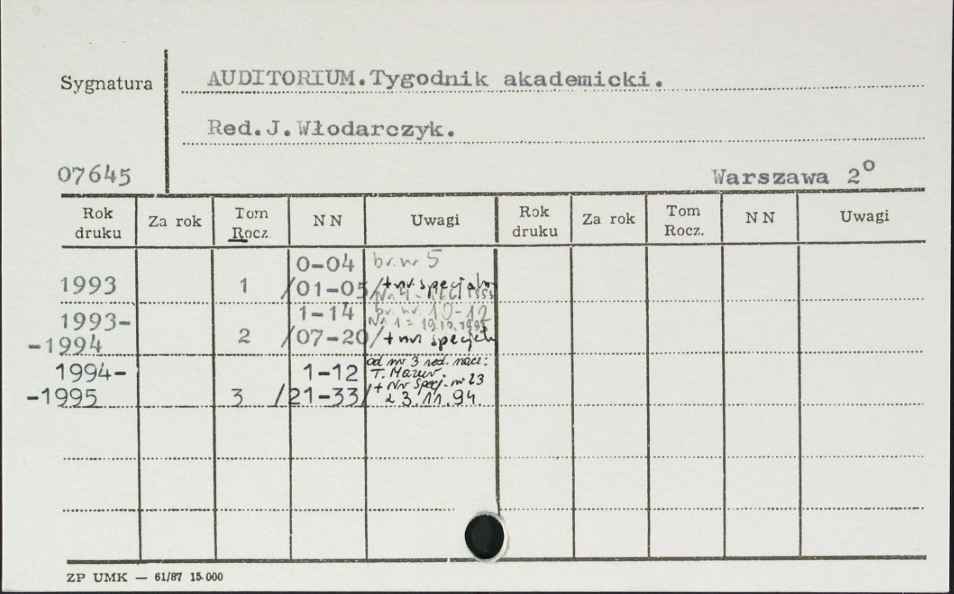 Sygnatura
AUDITORIUM.Tygodnik akademicki.
Red.J.Włodarczyk.
07645
Warszawa 2°
Rok druku Za rok Tom Rocz NN Uwagi Rok druku Za rok Tom Rocz. NN Uwagi
0-04 br. nr 5
1993 1 /01-05/ + nr specjalny
1-14 br. nr. 10-12
1993-
-1994 2 /07-20/ + nr specjaln
1994- 1-12 od nr 3 red. nacz:
T. Mazur.
+ Nr spec. nr 23
-1995 3 /21-33/ z 3.11.94
ZP UMK — 61/87 15.000